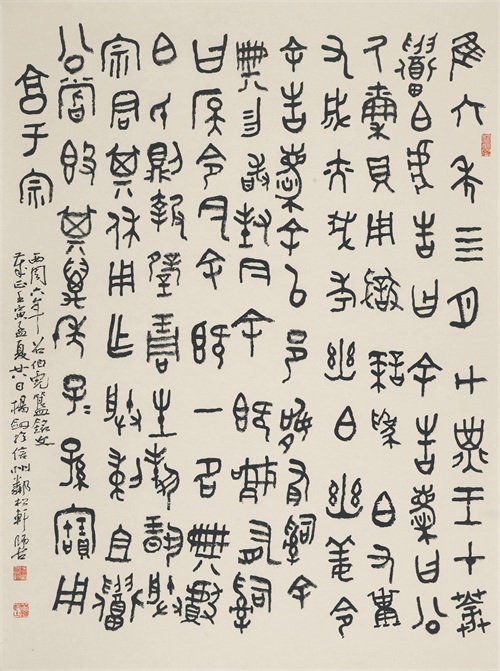 隹六年四月甲子王才葊
召白虎告曰余告慶曰公
厥稟貝用獄諫為白又祗
又成亦我考幽白幽姜令
余告慶余以邑訊有司余
典勿敢封今余既訊有司
曰戾令今余既一名典獻
白氏則報璧琱生對揚朕
宗君其休用乍朕剌且召
公嘗簋其萬年子子孫寶用
享于宗
西周六年召伯虎簋銘文
壬寅孟夏廿八日楊於信州鄰松軒師古